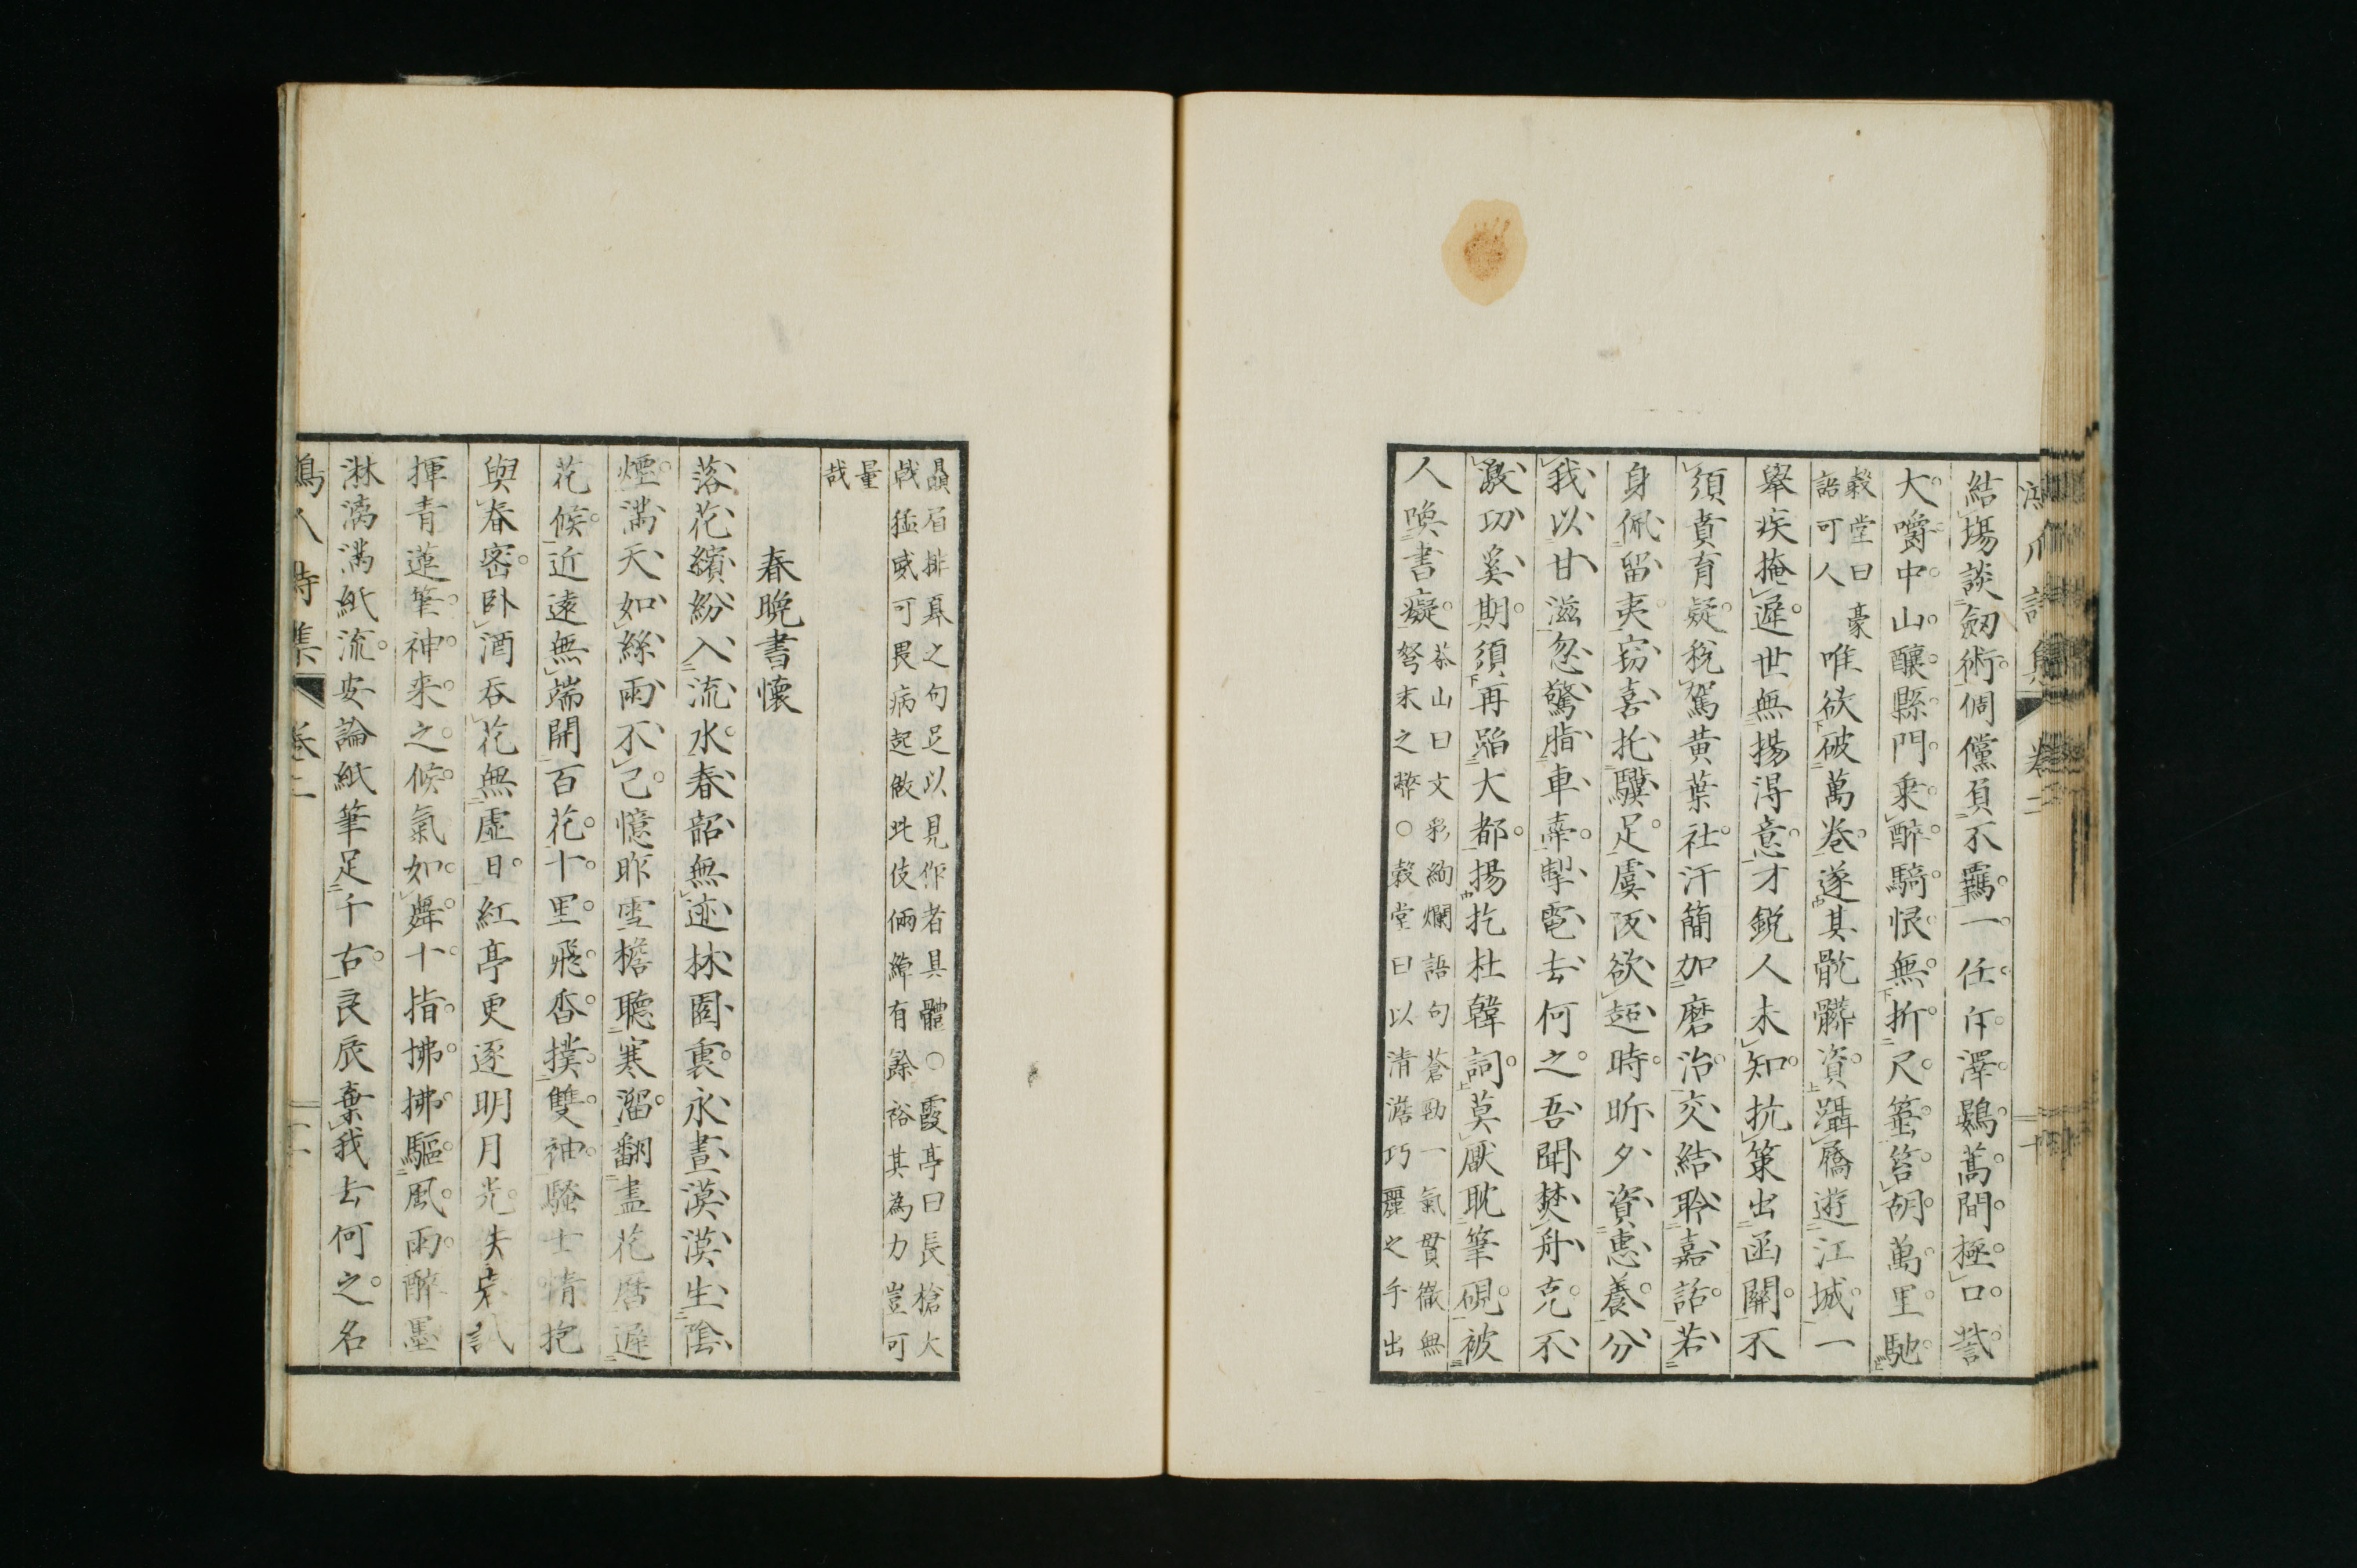 結塲談劔術倜儻負不羈一任斥澤鷃蒿間極口訾
大嚼中山釀縣門乘醉騎恨無折尺箠笞胡萬里馳
穀堂曰豪
語可人
唯欲破萬卷遂其骯髒資躡屩遊江城一
擧疾掩遲世無揚淂意才銳人未知抗策出函關不
須賁育疑稅駕黄葉社汗簡加磨治交結聆嘉話若
身佩留夷窃喜托驥足虞阪欲超時昕夕資惠養分
我以甘滋忽驚脂車牽掣電去何之吾聞焚舟克不
激功奚期須再蹈大都揚扢杜韓詞莫厭耽筆硯被
人喚書癡
恭山曰文彩絢爛語句蒼勁一氣貫徹無
弩末之弊○穀堂曰以清澹巧麗之手出
贔屓排奡之句足以見作者具體○霞亭曰長槍大
戟猛威可畏病起做此伎倆綽有餘裕其為力豈可
量
哉
春晩書懷
落花繽紛入流水春韶無迹林園裏永晝漠漠生陰
煙滿天如絲雨不已憶昨雪檐聽寒溜翻盡花曆遲
花候近遠無端開百花十里飛香撲雙袖騷士情抱
與春密卧酒吞花無虛日紅亭更逐明月光失寀試
揮青蓮筆神来之候氣如舞十指拂拂驅風雨醉墨
淋漓滿紙流安論紙筆足千古良辰棄我去何之名
卷二